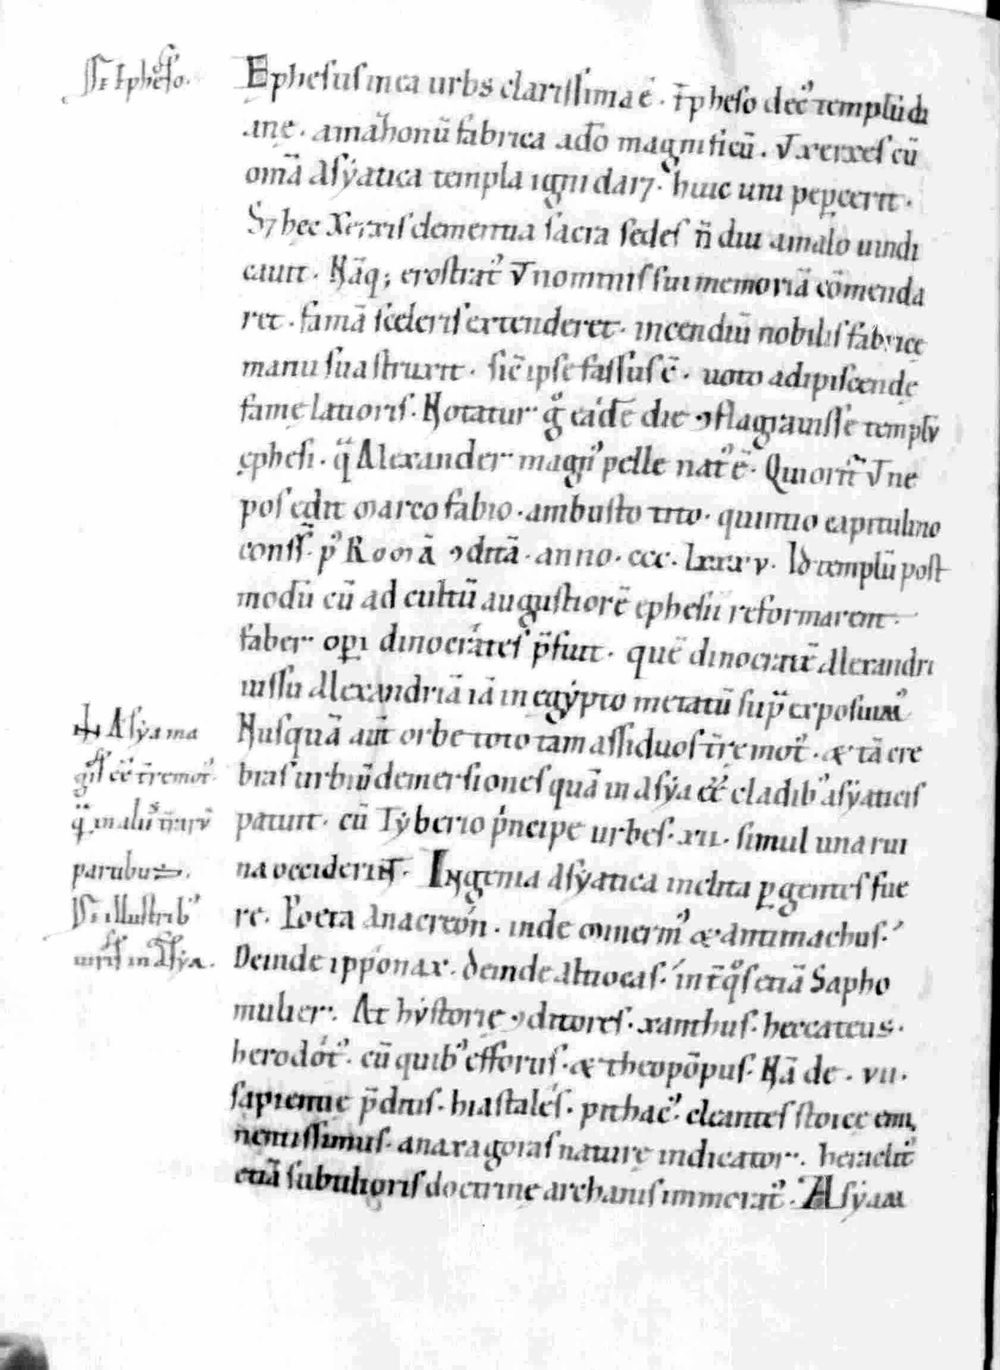 Ephesus in ea urbs clarissima ē. Epheso decꝰ templū di
anę. amaƶonū fabrica adōo magnificū. Vt xerxes cū
om̄ia Asẏatica templa igni dar&. huic uni peꝑcerit.
S; hec Xerxis clementia sacra sedes ñ diu a malo uindi
cauit. Nāq; erostratꝰ ut nominis sui memoriā cōmenda
ret. famā sceleris extenderet. incendiū nobilis fabricę
manu sua struxit. sic̄ ipse fassus ē. uoto adipiscendę
famę latioris. Notatur gͦ eadē die ꝯflagrauisse templū
ephesi. q̄ Alexander magnꝰ pelle natꝰ ē. Qui orit̄ ut ne
pos edit marco fabio. ambusto tito. quintio capitulino
conss̄. pꝰ Romā ꝯditā. anno. ccc. lxxxv. Id templū post
modū cū ad cultū augustiorē ephesii reformarent.
faber oꝑi dinocrates p̄fuit. quē dinocratē Alexandri
iussu Alexandriā iā in egẏpto metatū sup̄ exposuimꝰ
Nusquā aūt orbe toto tam assiduos t̄rę motꝰ. & tā cre
bras urbiū demersiones quā in asẏa ēē cladibꝰ asẏaticis
patuit. cū Tẏberio p̄ncipe urbes. xii. simul una rui
na occiderint. Ingenia Asẏatica inclita ꝑ gentes fue
re. Poeta Anacreón. inde minermꝰ & antimachus.
Deinde ipponax. deinde Alnocas. int̄ qͦs etiā Sapho
mulier. At hẏstorię ꝯditores. xanthus. heccateus.
herodótꝰ. cū quibꝰ efforus. & theopōpus. Nā de. vii.
sapientię p̄ditis. bias tales. pithacꝰ. cleantes stoicę emi
nentissimus. anaxagoras naturę indicator. heraclitꝰ
etiā subtilioris doctrinę archanis immoratꝰ. Asẏam
De Epheso.
In Asẏa ma
gis ēē t̄rę motꝰ
q̄ in aliis t̄rarū
partibus.
De illustribꝰ
uiris in Asẏa.